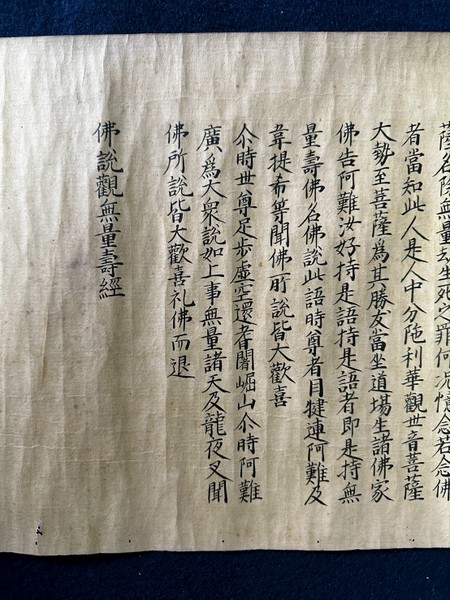 薩名除無量劫生死之罪何況憶念若念佛
者當知此人是人中分陁利華觀世音菩薩
大勢至菩薩為其勝友當坐道場生諸佛家
佛告阿難汝好持是語持是語者即是持無
量壽佛名佛說此語時尊者目犍連阿難及
韋提希等聞佛所說皆大歡喜
尒時世尊足步虛空還耆闍崛山尒時阿難
廣為大衆說如上事無量諸天及龍夜叉聞
佛所說皆大歡喜礼佛而退
佛說觀無量壽經